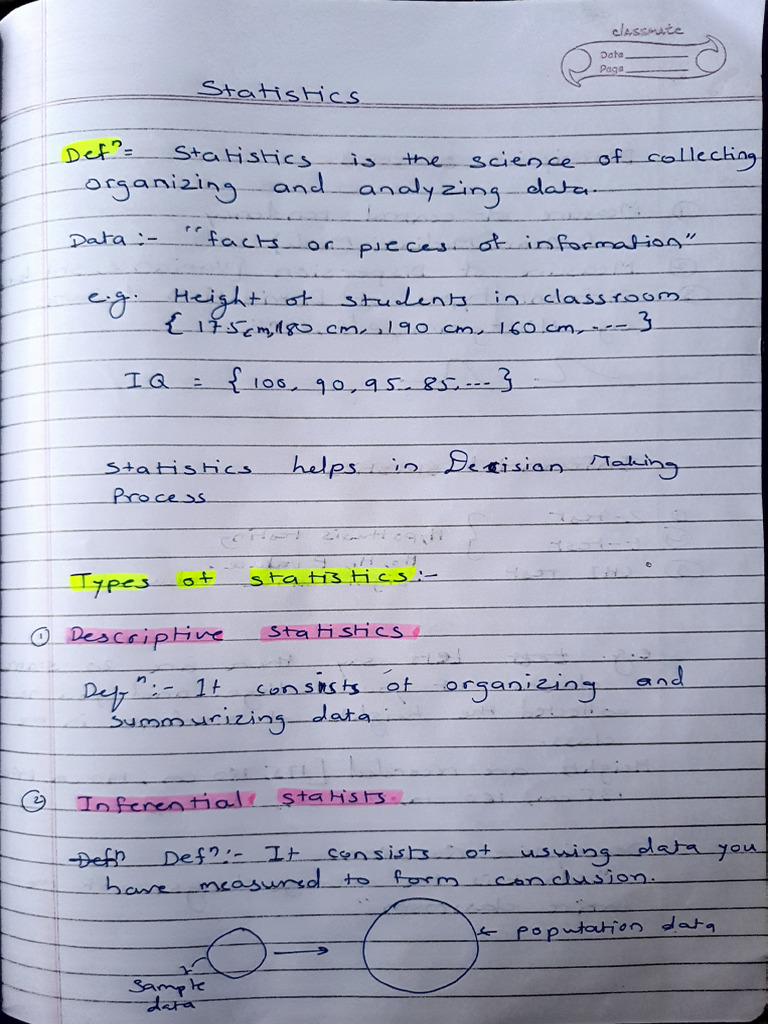 classmate
Date
Page
Statistics
Defⁿ = Statistics is the science of collecting
organizing and analyzing data.
Data :- "facts or pieces of information"
e.g. Height of students in classroom
{ 175cm, 180 cm, 190 cm, 160 cm, --- }
IQ = { 100, 90, 95, 85, --- }
statistics helps in Decision Making
Process
Types of statistics :-
① Descriptive statistics
Defⁿ :- It consists of organizing and
summurizing data
② Inferential statists.
Defⁿ Defⁿ :- It consists of usuing data you
have measured to form conclusion.
← population data
sample
data